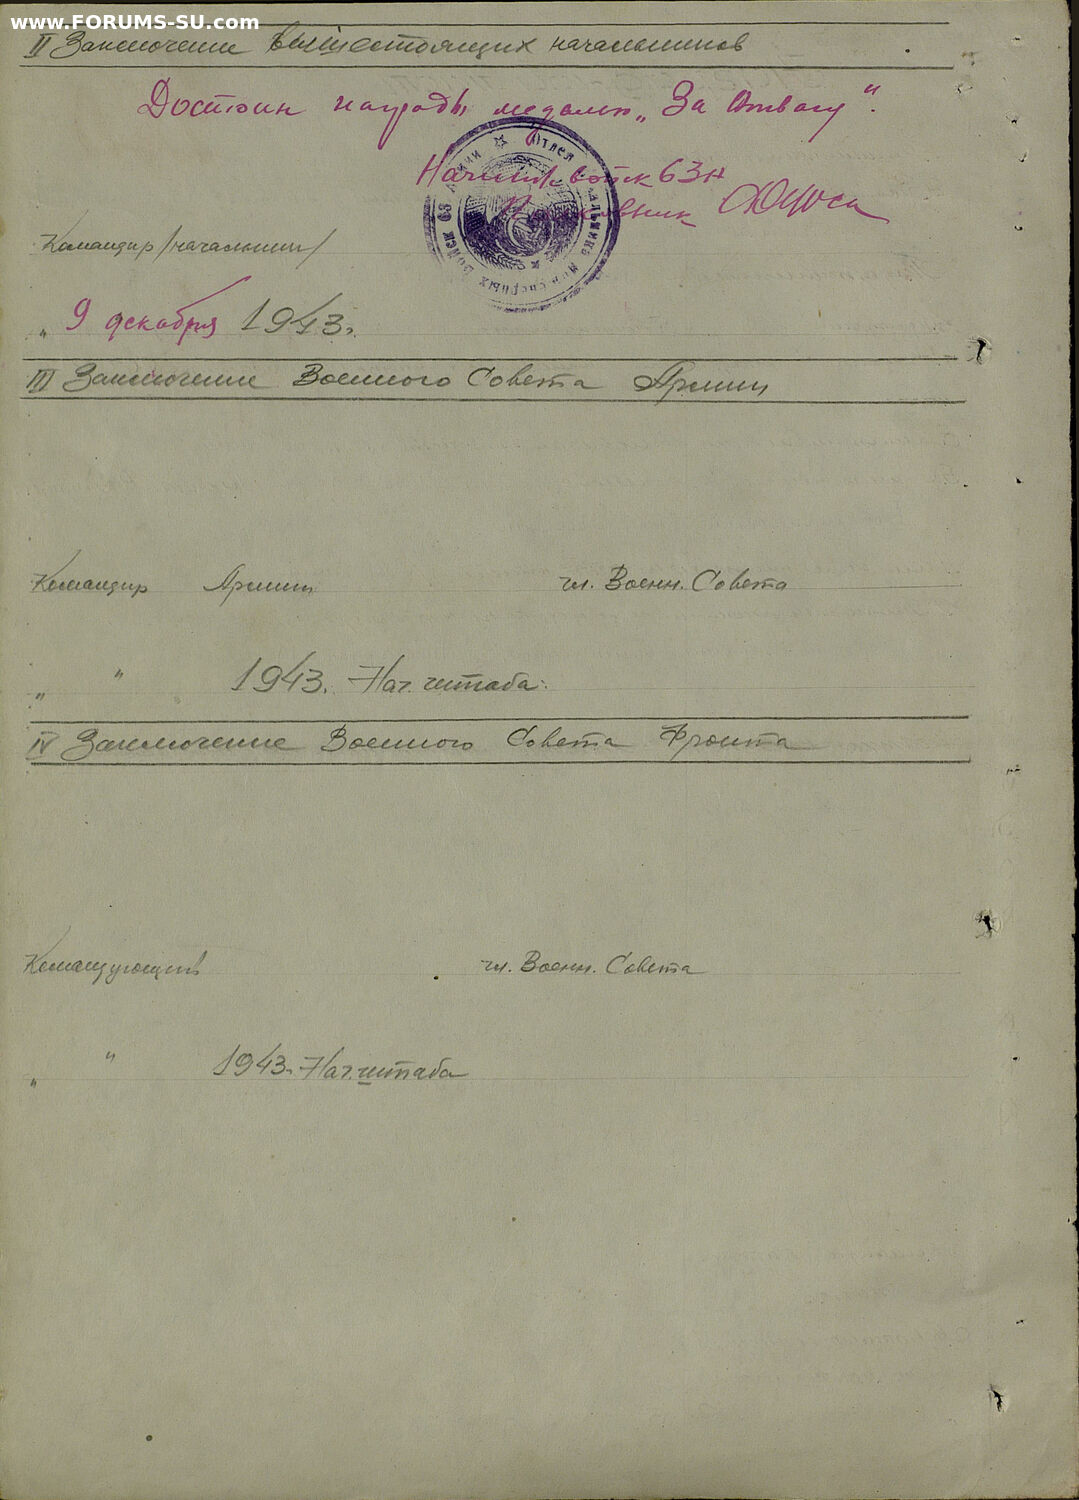 www.FORUMS-SU.com
II Заключение вышестоящих начальников
Достоин награды медалью „За Отвагу“.
Начинж. войск 63 А
Полковник
Отдел Начальника Инженерных Войск 63 Армии
Командир /начальник/
„ 9 декабря 1943г.
III Заключение Военного Совета Армии
Командир Армии чл. Военн. Совета
„ “ 1943. Нач. штаба:
IV Заключение Военного Совета Фронта
Командующий чл. Военн. Совета
„ “ 1943. Нач. штаба